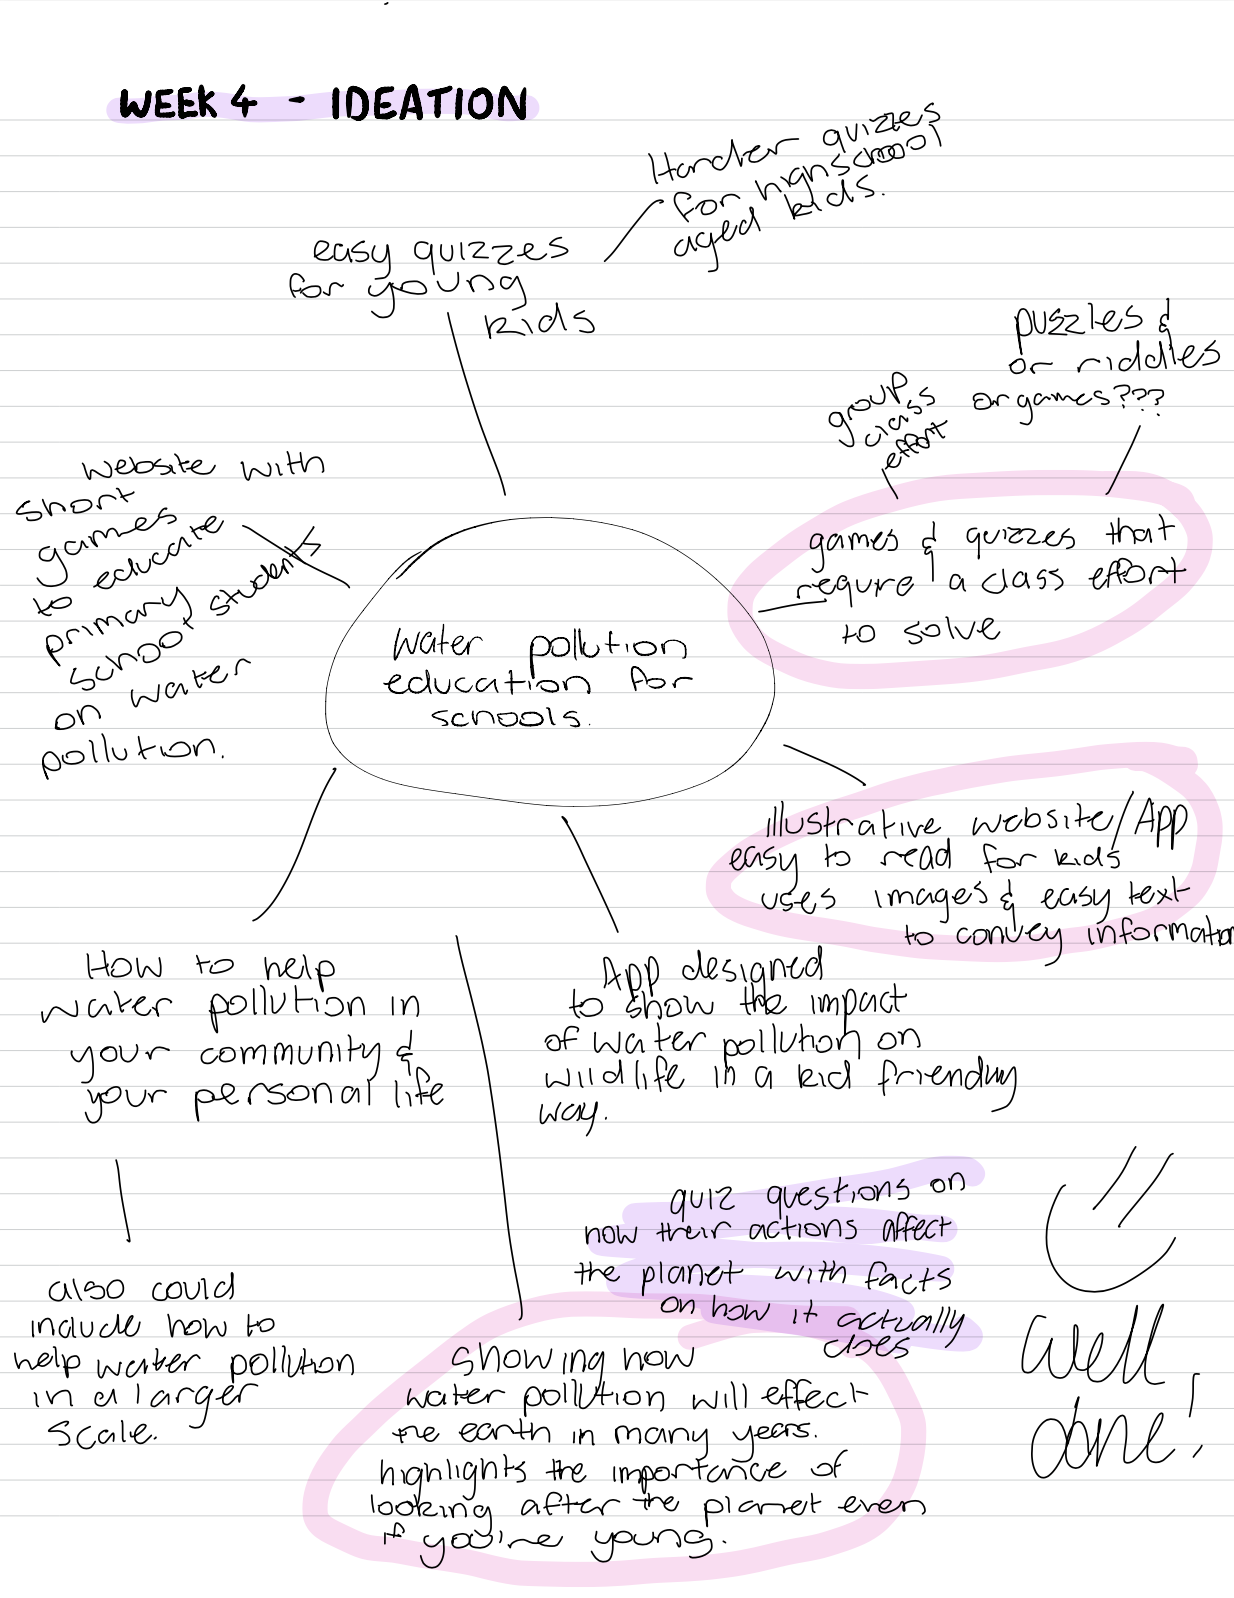 WEEK 4 - IDEATION
Harder quizzes
for highschool
aged kids.
easy quizzes
for young
kids
puzzles &
or riddles
or games???
group
class
effort
website with
short
games
to educate
primary
school students
on water
pollution.
games & quizzes that
requre a class effort
to solve
water pollution
education for
schools.
illustrative website/App
easy to read for kids
uses images & easy text
to convey information
How to help
water pollution in
your community &
your personal life
App designed
to show the impact
of water pollution on
wildlife in a kid friendly
way.
quiz questions on
how their actions affect
the planet with facts
on how it actually
does
also could
include how to
help water pollution
in a larger
scale.
showing how
water pollution will effect
the earth in many years.
highlights the importance of
looking after the planet even
if you're young.
well
done!